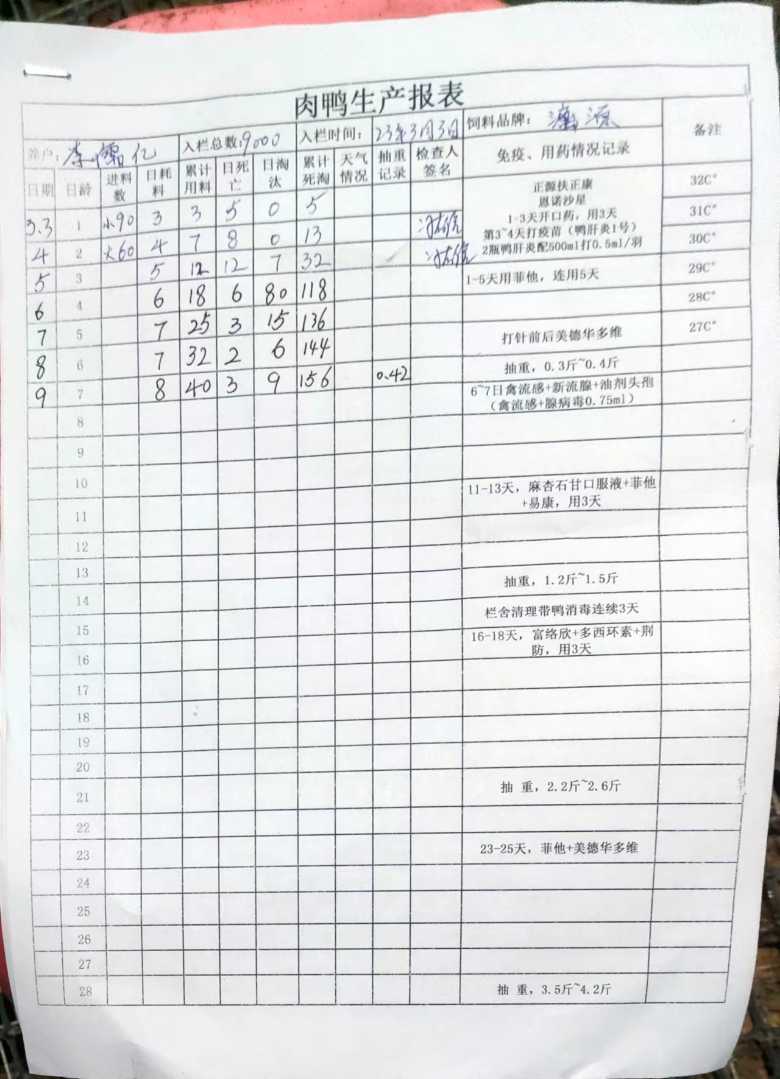 肉鸭生产报表
养户: 李 亿 入栏总数:9000 入栏时间: 23年3月3日 饲料品牌: 源 备注
日期 日龄 进料数 日耗料 累计用料 日死亡 日淘汰 累计死淘 天气情况 抽重记录 检查人签名 免疫、用药情况记录
3.3 1 小90 3 3 5 0 5
4 2 大60 4 7 8 0 13
5 3 5 12 12 7 32
6 4 6 18 6 80 118
7 5 7 25 3 15 136
8 6 7 32 2 6 144
9 7 8 40 3 9 156 0.42
8
9
10
11
12
13
14
15
16
17
18
19
20
21
22
23
24
25
26
27
28
正源扶正康
恩诺沙星
1-3天开口药，用3天
第3~4天打疫苗（鸭肝炎1号）
2瓶鸭肝炎配500ml打0.5ml/羽
1-5天用菲他，连用5天
打针前后美德华多维
抽重，0.3斤~0.4斤
6~7日禽流感+新流腺+油剂头孢
（禽流感+腺病毒0.75ml）
11-13天，麻杏石甘口服液+菲他
+易康，用3天
抽重，1.2斤~1.5斤
栏舍清理带鸭消毒连续3天
16-18天，富络欣+多西环素+荆
防，用3天
抽 重，2.2斤~2.6斤
23-25天，菲他+美德华多维
抽 重，3.5斤~4.2斤
32C°
31C°
30C°
29C°
28C°
27C°